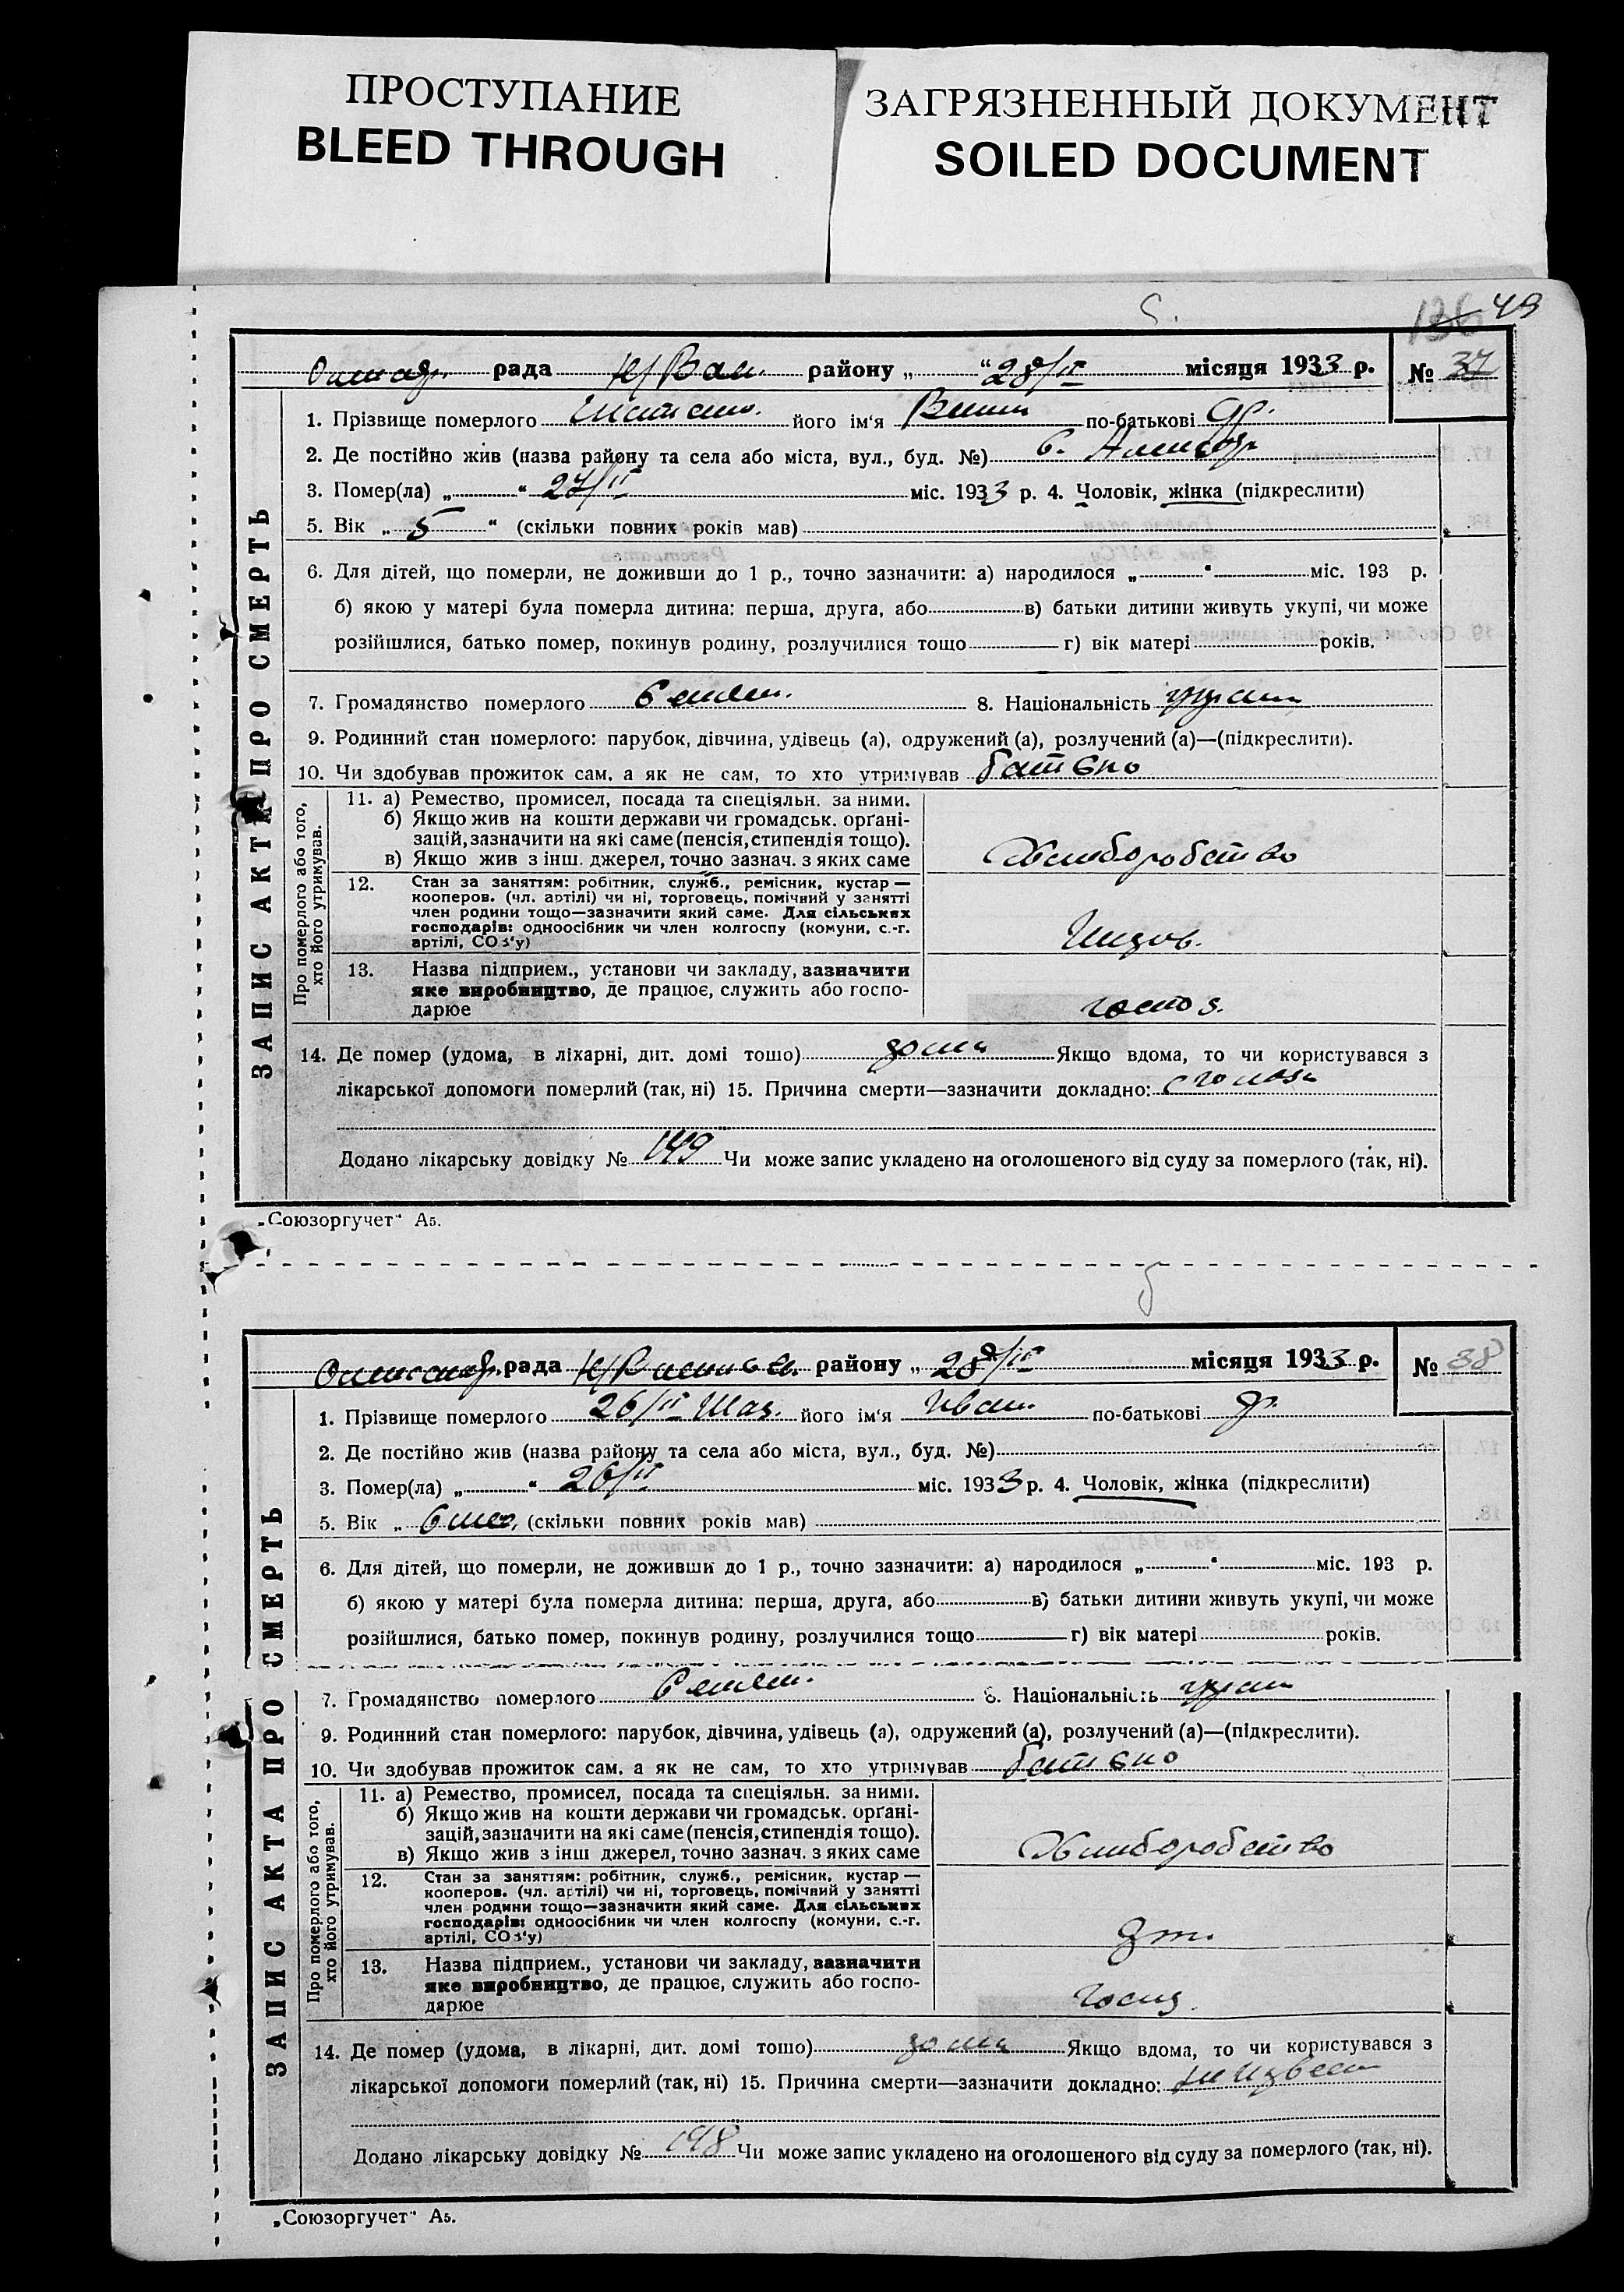 ПРОСТУПАНИЕ
BLEED THROUGH
ЗАГРЯЗНЕННЫЙ ДОКУМЕНТ
SOILED DOCUMENT
136 49
рада Н/Вас. району „ “ 28/II місяця 1933 р. № 37
1. Прізвище померлого його ім'я по-батькові
2. Де постійно жив (назва району та села або міста, вул., буд. №) с.
3. Помер(ла) „ “ 27/II міс. 1933 р. 4. Чоловік, жінка (підкреслити)
5. Вік „ 5 “ (скільки повних років мав)
6. Для дітей, що померли, не доживши до 1 р., точно зазначити: а) народилося „ “ міс. 193 р.
б) якою у матері була померла дитина: перша, друга, або в) батьки дитини живуть укупі, чи може
розійшлися, батько помер, покинув родину, розлучилися тощо г) вік матері років.
7. Громадянство померлого 8. Національність украин
9. Родинний стан померлого: парубок, дівчина, удівець (а), одружений (а), розлучений (а)—(підкреслити).
10. Чи здобував прожиток сам, а як не сам, то хто утримував батько
ЗАПИС АКТА ПРО СМЕРТЬ
Про померлого або того, хто його утримував.
11. а) Ремество, промисел, посада та спеціяльн. за ними.
б) Якщо жив на кошти держави чи громадськ. орґані-
зацій, зазначити на які саме (пенсія, стипендія тощо).
в) Якщо жив з інш. джерел, точно зазнач. з яких саме
Хлиборобство
12. Стан за заняттям: робітник, служб., ремісник, кустар —
кооперов. (чл. артілі) чи ні, торговець, помічний у занятті
член родини тощо—зазначити який саме. Для сільських
господарів: одноосібник чи член колгоспу (комуни, с.-г.
артілі, СОЗ'у)
13. Назва підприєм., установи чи закладу, зазначити
яке виробництво, де працює, служить або госпо-
дарює
14. Де помер (удома, в ліхарні, дит. домі тошо) дома Якщо вдома, то чи користувався з
лікарської допомоги померлий (так, ні) 15. Причина смерти—зазначити докладно:
Додано лікарську довідку № 149 Чи може запис укладено на оголошеного від суду за померлого (так, ні).
„Союзоргучет" А5.
рада району „ 28/II місяця 1933 р. № 38
1. Прізвище померлого 26/II його ім'я Иван по-батькові
2. Де постійно жив (назва району та села або міста, вул., буд. №)
3. Помер(ла) „ “ 26/II міс. 1933 р. 4. Чоловік, жінка (підкреслити)
5. Вік „ 6 мес. (скільки повних років мав)
6. Для дітей, що померли, не доживши до 1 р., точно зазначити: а) народилося „ “ міс. 193 р.
б) якою у матері була померла дитина: перша, друга, або в) батьки дитини живуть укупі, чи може
розійшлися, батько помер, покинув родину, розлучилися тощо г) вік матері років.
7. Громадянство померлого 8. Національність украин
9. Родинний стан померлого: парубок, дівчина, удівець (а), одружений (а), розлучений (а)—(підкреслити).
10. Чи здобував прожиток сам, а як не сам, то хто утримував батько
ЗАПИС АКТА ПРО СМЕРТЬ
Про померлого або того, хто його утримував.
11. а) Ремество, промисел, посада та спеціяльн. за ними.
б) Якщо жив на кошти держави чи громадськ. орґані-
зацій, зазначити на які саме (пенсія, стипендія тощо).
в) Якщо жив з інш джерел, точно зазнач. з яких саме
Хлиборобство
12. Стан за заняттям: робітник, служб., ремісник, кустар —
кооперов. (чл. артілі) чи ні, торговець, помічний у занятті
член родини тощо—зазначити який саме. Для сільських
господарів: одноосібник чи член колгоспу (комуни, с.-г.
артілі, СОЗ'у)
13. Назва підприєм., установи чи закладу, зазначити
яке виробництво, де працює, служить або госпо-
дарює
14. Де помер (удома, в лікарні, дит. домі тошо) дома Якщо вдома, то чи користувався з
лікарської допомоги померлий (так, ні) 15. Причина смерти—зазначити докладно: неизвест
Додано лікарську довідку № 148 Чи може запис укладено на оголошеного від суду за померлого (так, ні).
„Союзоргучет" А5.